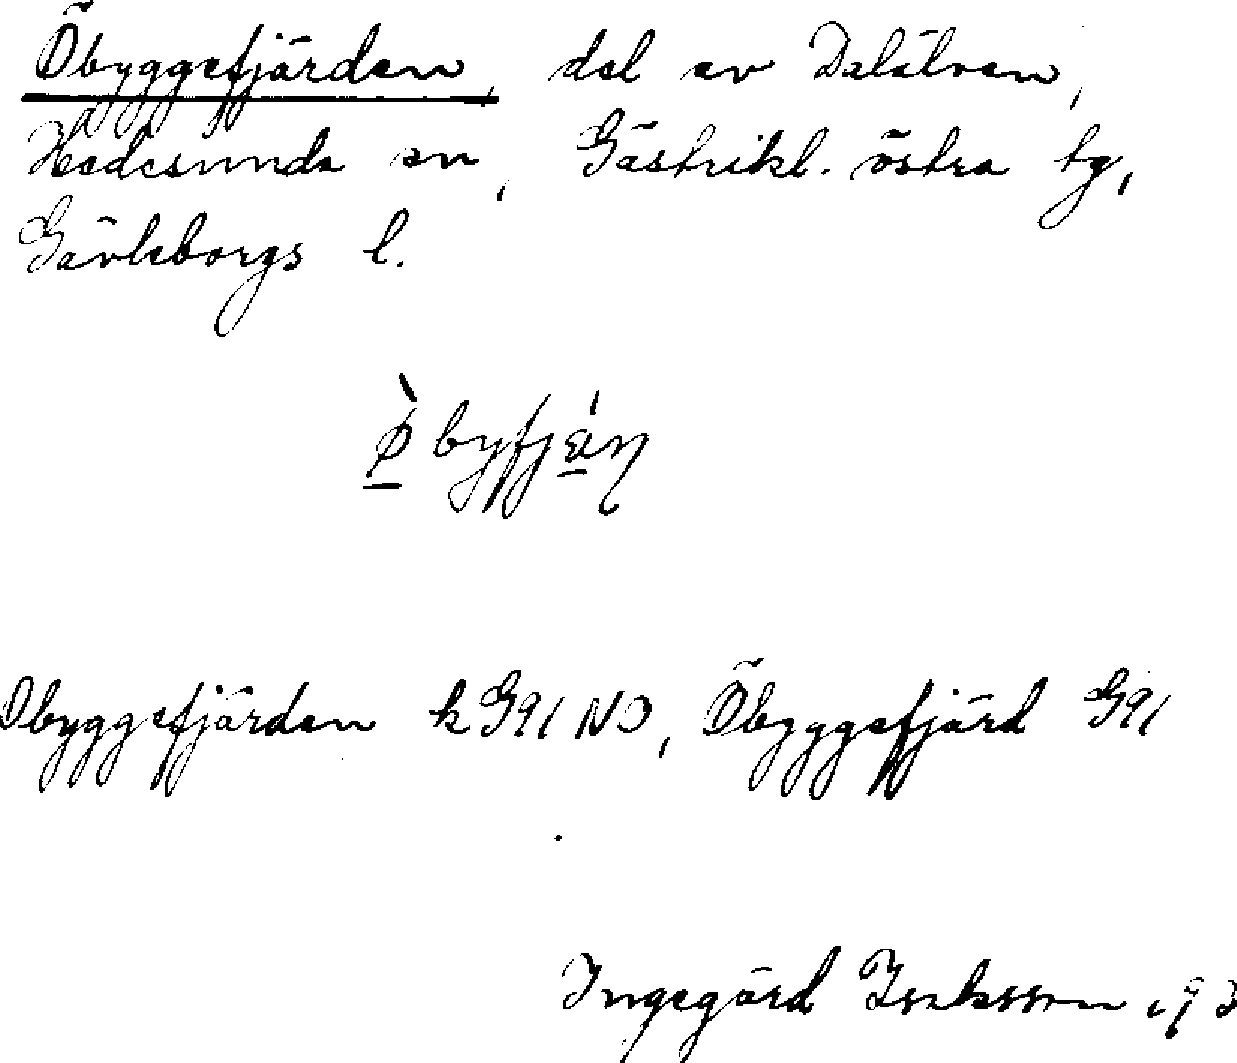 Öbyggefjärden, del av Dalälven,
Hedesunda sn, Gästrikl. östra tg,
Gävleborgs l.
Öbyggefjärden k G91 NO, Öbyggefjärd G91
Ingegärd Isaksson 193